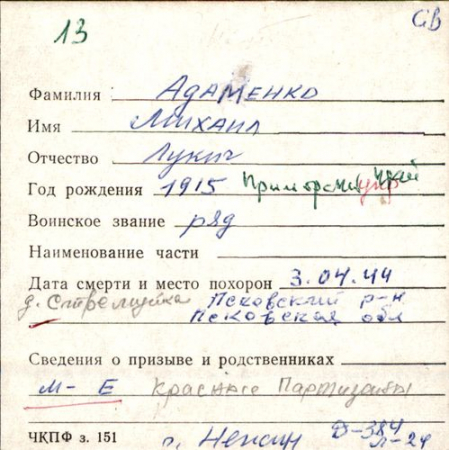 13 СВ
Фамилия Адаменко
Имя Михаил
Отчество Лукич
Год рождения 1915 Приморский край
Воинское звание ряд
Наименование части
Дата смерти и место похорон 3.04.44
д. Стремутка Псковский р-н
Псковская обл
Сведения о призыве и родственниках
м-Е Красные Партизаны
ЧКПФ з. 151 Д-384
Л-24